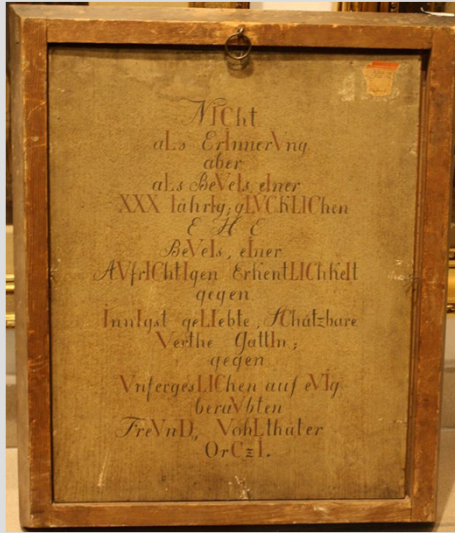 NICht
aLs ErInnerVng
aber
aLs BeVeIs eIner
XXX IährIg; gLVCKLIChen
E H E
BeVeIs, eIner
AVfrIChtIgen ErkentLIChkeIt
gegen
InnIgst geLIebte, SChätzbare
Verthe GattIn;
gegen
VnfergesLIChen auf eVIg
beraVbten
FreVnD, VohLthäter
OrCzI.